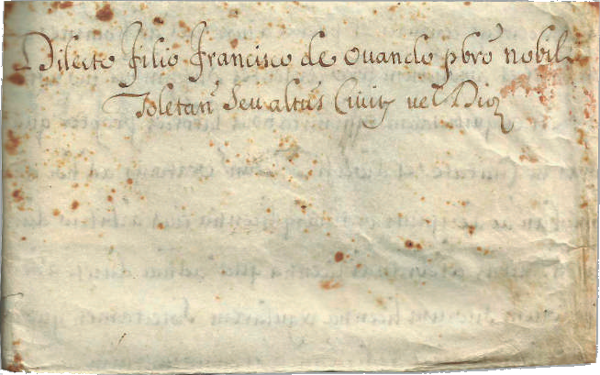 Dilecto filio Francisco de Ovando pbrō nobil
Toletan̄ Seu alterīs Civit⁊ vel Dioꝫ